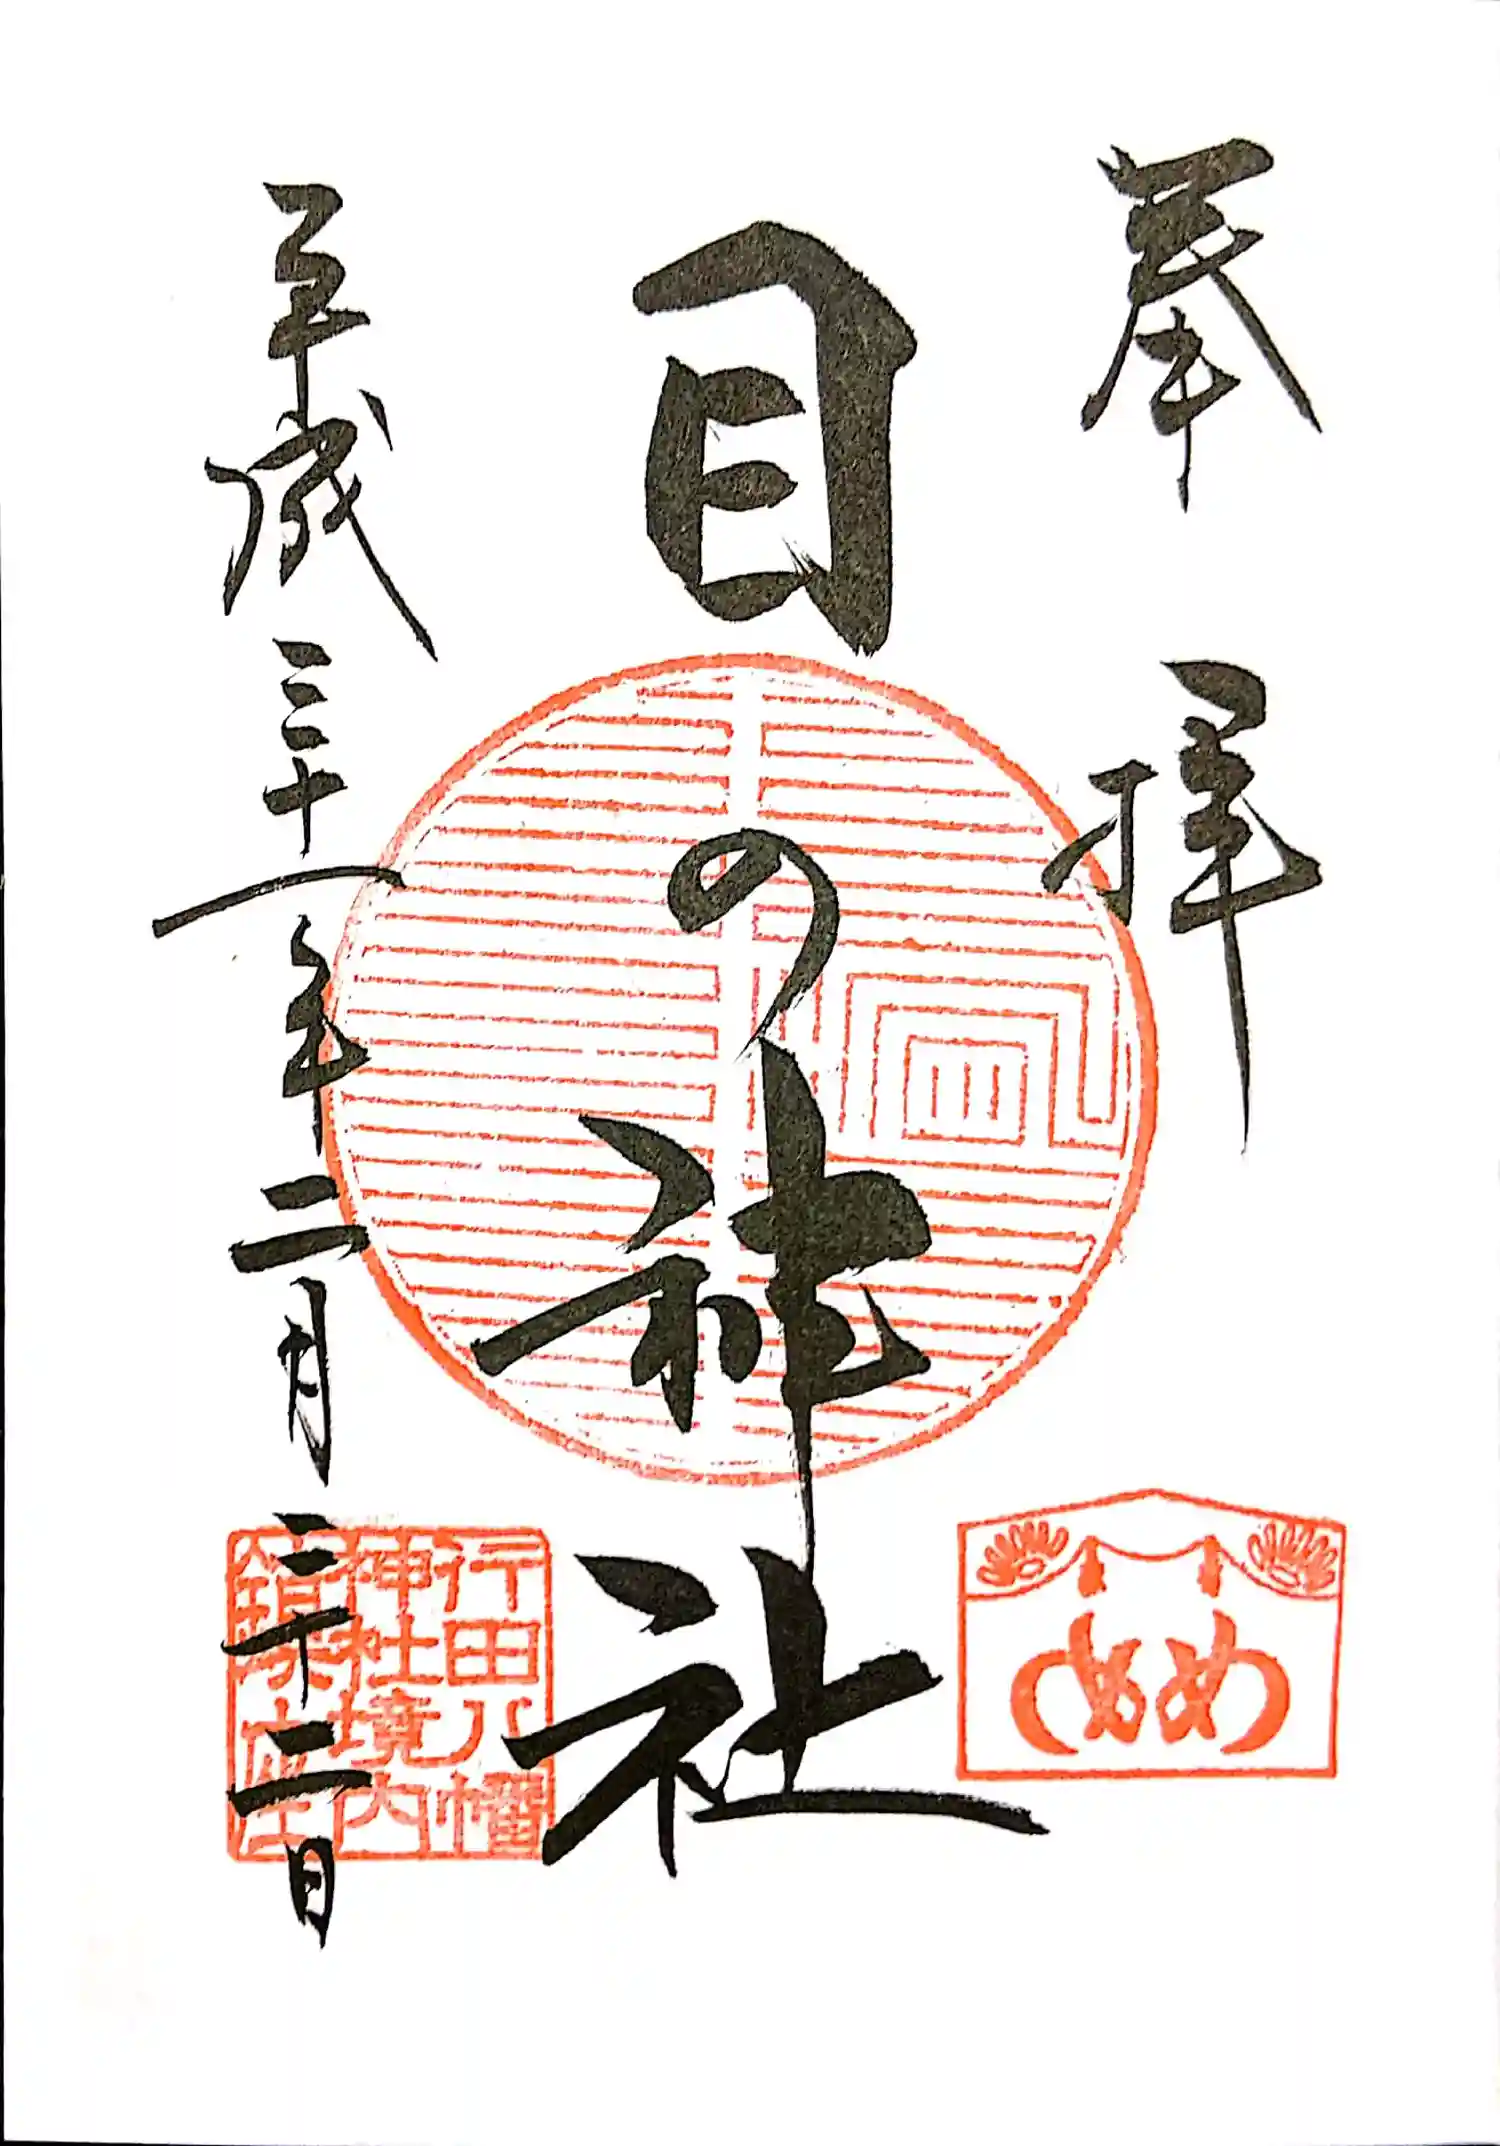 奉拝
目の神社
平成三十一年二月二十二日
行田八幡
神社境内
鎮座
めめ